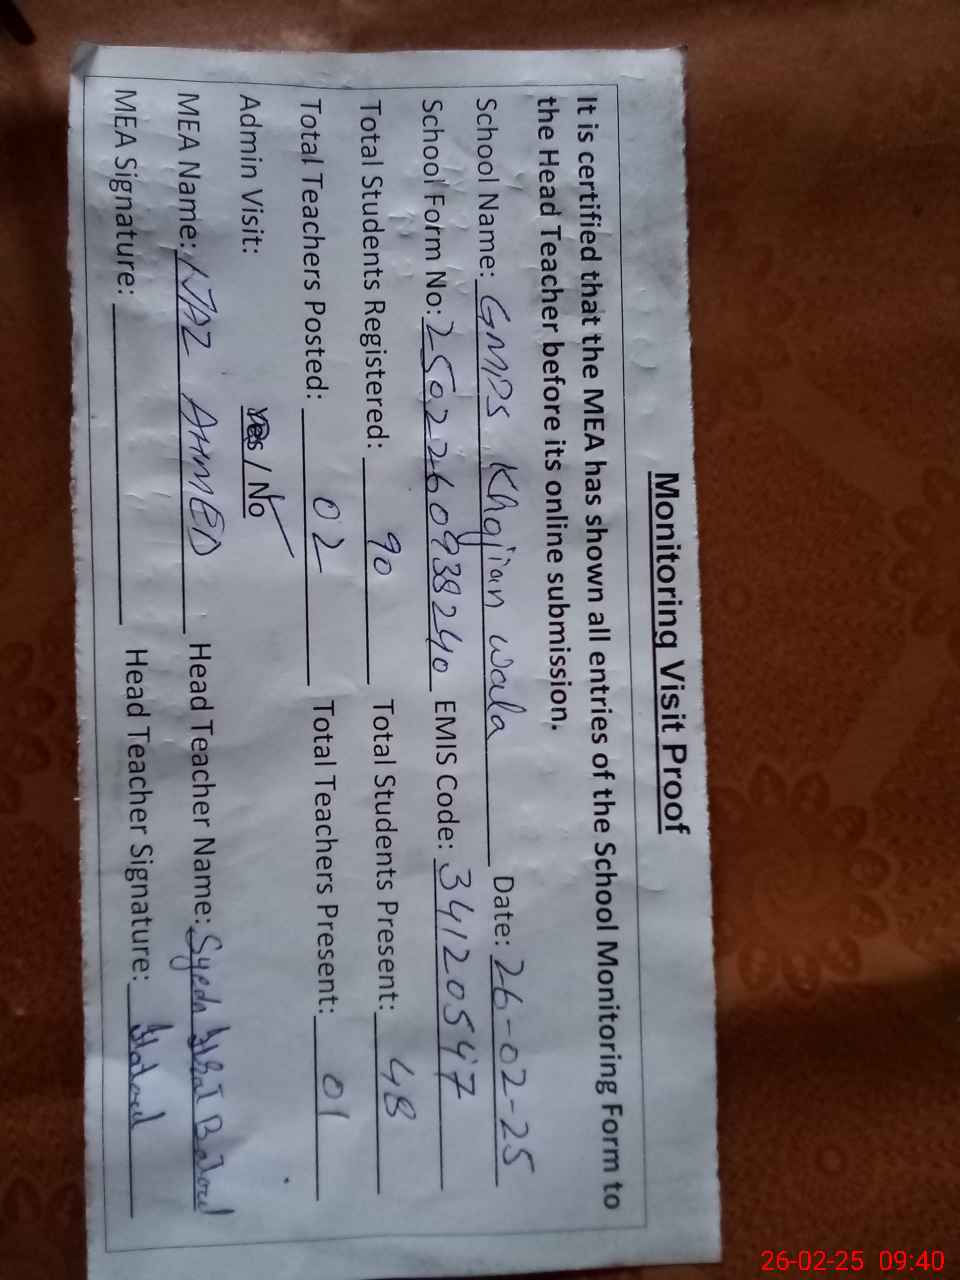 Monitoring Visit Proof
It is certified that the MEA has shown all entries of the School Monitoring Form to
the Head Teacher before its online submission.
School Name: GMPS Khojian wala Date: 26-02-25
School Form No: 2502260938240 EMIS Code: 34120547
Total Students Registered: 90 Total Students Present: 48
Total Teachers Posted: 02 Total Teachers Present: 01
Admin Visit: Yes / No
MEA Name: IJAZ AHMED Head Teacher Name: Syeda Batool
MEA Signature: Head Teacher Signature:
26-02-25 09:40